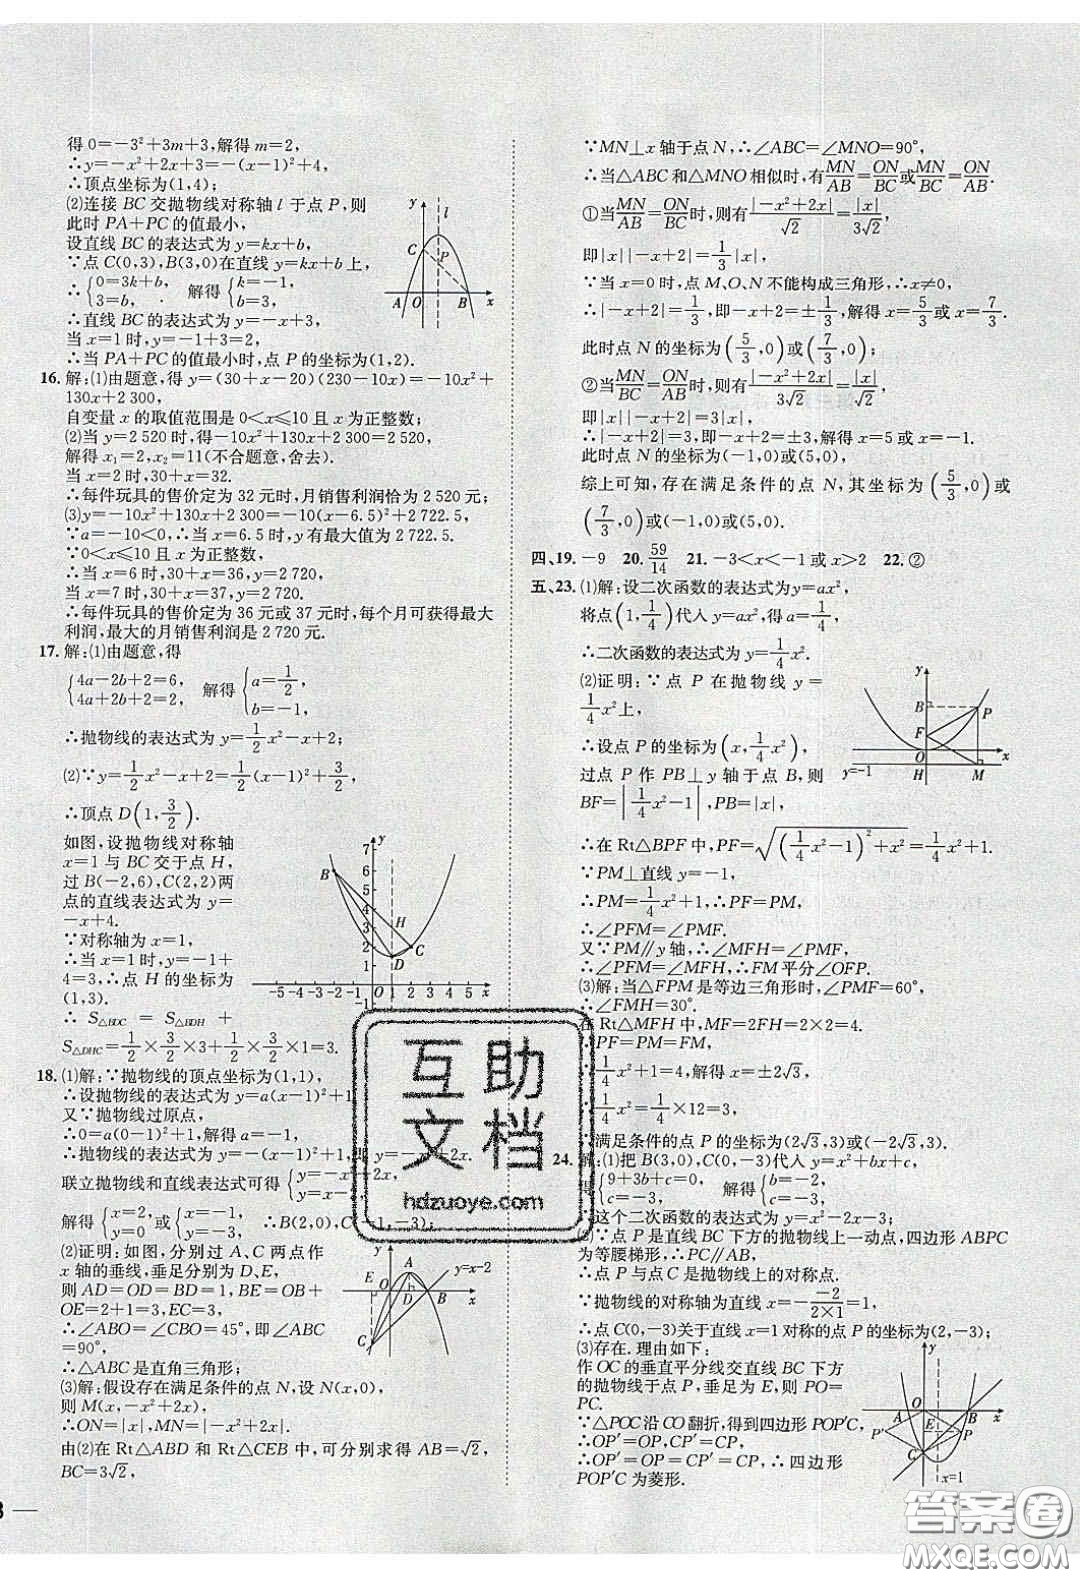 得0=-3²+3m+3,解得m=2,
∴y=-x²+2x+3=-(x-1)²+4,
∴顶点坐标为(1,4);
(2)连接BC交抛物线对称轴l于点P,则
此时PA+PC的值最小,
设直线BC的表达式为y=kx+b,
∵点C(0,3),B(3,0)在直线y=kx+b上,
∴{0=3k+b, 3=b. 解得{k=-1, b=3,
∴直线BC的表达式为y=-x+3,
当x=1时,y=-1+3=2,
∴当PA+PC的值最小时,点P的坐标为(1,2).
y l C P A O B x
16.解:(1)由题意,得y=(30+x-20)(230-10x)=-10x²+
130x+2 300,
自变量x的取值范围是0<x≤10且x为正整数;
(2)当y=2 520时,得-10x²+130x+2 300=2 520,
解得x₁=2,x₂=11(不合题意,舍去).
当x=2时,30+x=32.
∴每件玩具的售价定为32元时,月销售利润恰为2 520元;
(3)y=-10x²+130x+2 300=-10(x-6.5)²+2 722.5,
∵a=-10<0,∴当x=6.5时,y有最大值为2 722.5.
∵0<x≤10且x为正整数,
∴当x=6时,30+x=36,y=2 720,
当x=7时,30+x=37,y=2 720,
∴每件玩具的售价定为36元或37元时,每个月可获得最大
利润,最大的月销售利润是2 720元.
17.解:(1)由题意,得
{4a-2b+2=6, 4a+2b+2=2, 解得{a=1/2, b=-1,
∴抛物线的表达式为y=1/2x²-x+2;
(2)∵y=1/2x²-x+2=1/2(x-1)²+3/2,
∴顶点D(1,3/2).
如图,设抛物线对称轴
x=1与BC交于点H,
过B(-2,6),C(2,2)两
点的直线表达式为y=
-x+4,
∵对称轴为x=1,
∴当x=1时,y=-1+
4=3,∴点H的坐标为
(1,3).
∴ S△BDC = S△BDH +
S△DHC=1/2×3/2×3+1/2×3/2×1=3.
7 6 5 4 3 2 1 B H C D
-5 -4 -3 -2 -1 O 1 2 3 4 5 x
18.(1)解:∵抛物线的顶点坐标为(1,1),
∴设抛物线的表达式为y=a(x-1)²+1
又∵抛物线过原点,
∴0=a(0-1)²+1,解得a=-1,
∴抛物线的表达式为y=-(x-1)²+1,即y=
联立抛物线和直线表达式可得{y=-x y=x-
解得{x=2, y=0 或{x=-1, y=-3. ∴B(2,0),C(-1,-3);
(2)证明:如图,分别过A、C两点作
x轴的垂线,垂足分别为D、E,
则AD=OD=BD=1,BE=OB+
OE=2+1=3,EC=3,
∴∠ABO=∠CBO=45°,即∠ABC
=90°,
∴△ABC是直角三角形;
y A y=x-2 E O D B x C
(3)解:假设存在满足条件的点N,设N(x,0),
则M(x,-x²+2x),
∴ON=|x|,MN=|-x²+2x|,
由(2)在Rt△ABD和Rt△CEB中,可分别求得AB=√2,
BC=3√2,
∵MN⊥x轴于点N,∴∠ABC=∠MNO=90°,
∴当△ABC和△MNO相似时,有MN/AB=ON/BC或MN/BC=ON/AB.
①当MN/AB=ON/BC时,则有|-x²+2x|/√2=|x|/3√2,
即|x||-x+2|=1/3|x|,
∵当x=0时,点M、O、N不能构成三角形,∴x≠0,
∴|-x+2|=1/3,∴-x+2=±1/3,解得x=5/3或x=7/3.
此时点N的坐标为(5/3,0)或(7/3,0);
②当MN/BC=ON/AB时,则有|-x²+2x|/3√2=|x|/√2,
即|x||-x+2|=3|x|,
∴|-x+2|=3,即-x+2=±3,解得x=5或x=-1.
此时点N的坐标为(-1,0)或(5,0),
综上可知,存在满足条件的点N,其坐标为(5/3,0)或
(7/3,0)或(-1,0)或(5,0).
四、19.-9 20.59/14 21.-3<x<-1或x>2 22.②
五、23.(1)解:设二次函数的表达式为y=ax²,
将点(1,1/4)代入y=ax²,得a=1/4,
∴二次函数的表达式为y=1/4x².
(2)证明:∵点P在抛物线y=
1/4x²上,
∴设点P的坐标为(x,1/4x²),
过点P作PB⊥y轴于点B,则
BF=|1/4x²-1|,PB=|x|,
y B P F O x y=-1 H M
∴在Rt△BPF中,PF=√((1/4x²-1)²+x²)=1/4x²+1.
∵PM⊥直线y=-1,
∴PM=1/4x²+1,∴PF=PM,
∴∠PFM=∠PMF.
又∵PM∥y轴,∴∠MFH=∠PMF,
∴∠PFM=∠MFH,∴FM平分∠OFP.
(3)解:当△FPM是等边三角形时,∠PMF=60°,
∴∠FMH=30°.
在Rt△MFH中,MF=2FH=2×2=4.
∵PF=PM=FM,
∴1/4x²+1=4,解得x=±2√3,
∴1/4x²=1/4×12=3,
∴满足条件的点P的坐标为(2√3,3)或(-2√3,3).
24.解:(1)把B(3,0),C(0,-3)代入y=x²+bx+c,
得{9+3b+c=0, c=-3, 解得{b=-2, c=-3.
∴这个二次函数的表达式为y=x²-2x-3;
(2)∵点P是直线BC下方的抛物线上一动点,四边形ABPC
为等腰梯形,∴PC∥AB,
∴点P与点C是抛物线上的对称点.
∵抛物线的对称轴为直线x=-(-2)/(2×1)=1,
∴点C(0,-3)关于直线x=1对称的点P的坐标为(2,-3);
(3)存在.理由如下:
作OC的垂直平分线交直线BC下方
的抛物线于点P,垂足为E,则PO=
PC.
∵△POC沿CO翻折,得到四边形POP'C,
∴OP'=OP,CP'=CP,
∴OP'=OP=CP'=CP,∴四边形
POP'C为菱形.
y A O B x P' E P C x=1
互助
文档
hdzuoye.com
答案圈
MXQE.COM